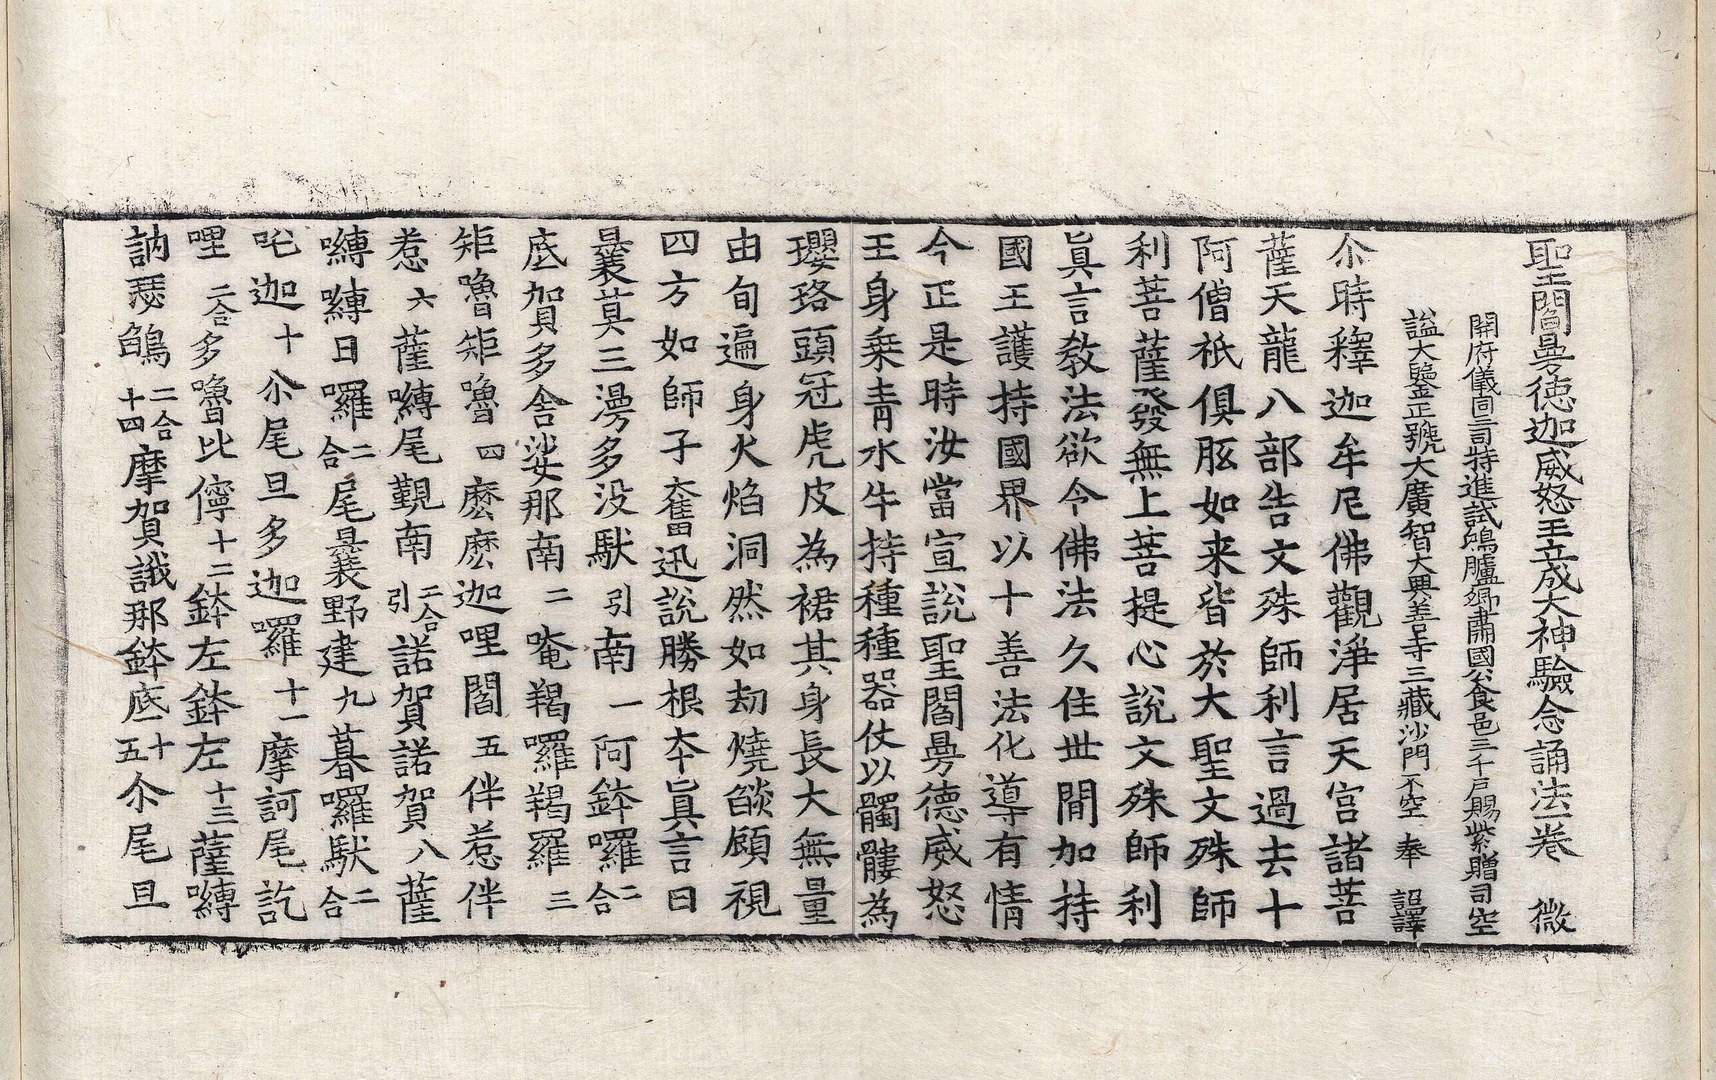 聖閻曼德迦威怒王立成大神驗念誦法一卷 微
開府儀同三司特進試鴻臚卿肅國公食邑三千戸賜紫贈司空
謚大鑒正號大廣智大興善寺三藏沙門不空奉 詔譯
尒時釋迦牟尼佛觀淨居天宮諸菩
薩天龍八部告文殊師利言過去十
阿僧祇俱胝如来皆於大聖文殊師
利菩薩發無上菩提心說文殊師利
眞言教法欲令佛法久住世間加持
國王護持國界以十善法化導有情
今正是時汝當宣說聖閻曼德威怒
王身乗青水牛持種種器仗以髑髏為
瓔珞頭冠虎皮為裙其身長大無量
由旬遍身火焰洞然如劫燒燄顧視
四方如師子奮迅說勝根夲眞言曰
曩莫三漫多没馱引南一阿鉢囉二合
底賀多舍娑那南二唵羯囉羯囉三
矩嚕矩嚕四麽麽迦哩閻五伴惹伴
惹六薩嚩尾覲南二合引諾賀諾賀八薩
嚩嚩日囉二合尾曩野建九暮囉馱二合
吒迦十尒尾旦多迦囉十一摩訶尾訖
哩二合多嚕比儜十二鉢左鉢左十三薩嚩
訥瑟鵮二合十四摩賀誐那鉢底十五尒尾旦